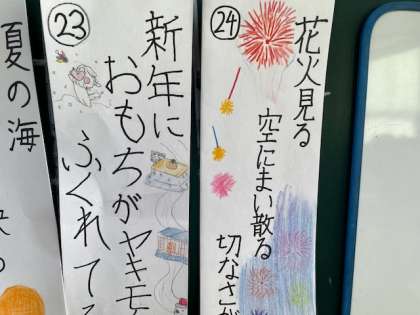 24
花火見る
空にまい散る
切なさが
23
新年に
おもちがヤキモ
ふくれてる
夏の海